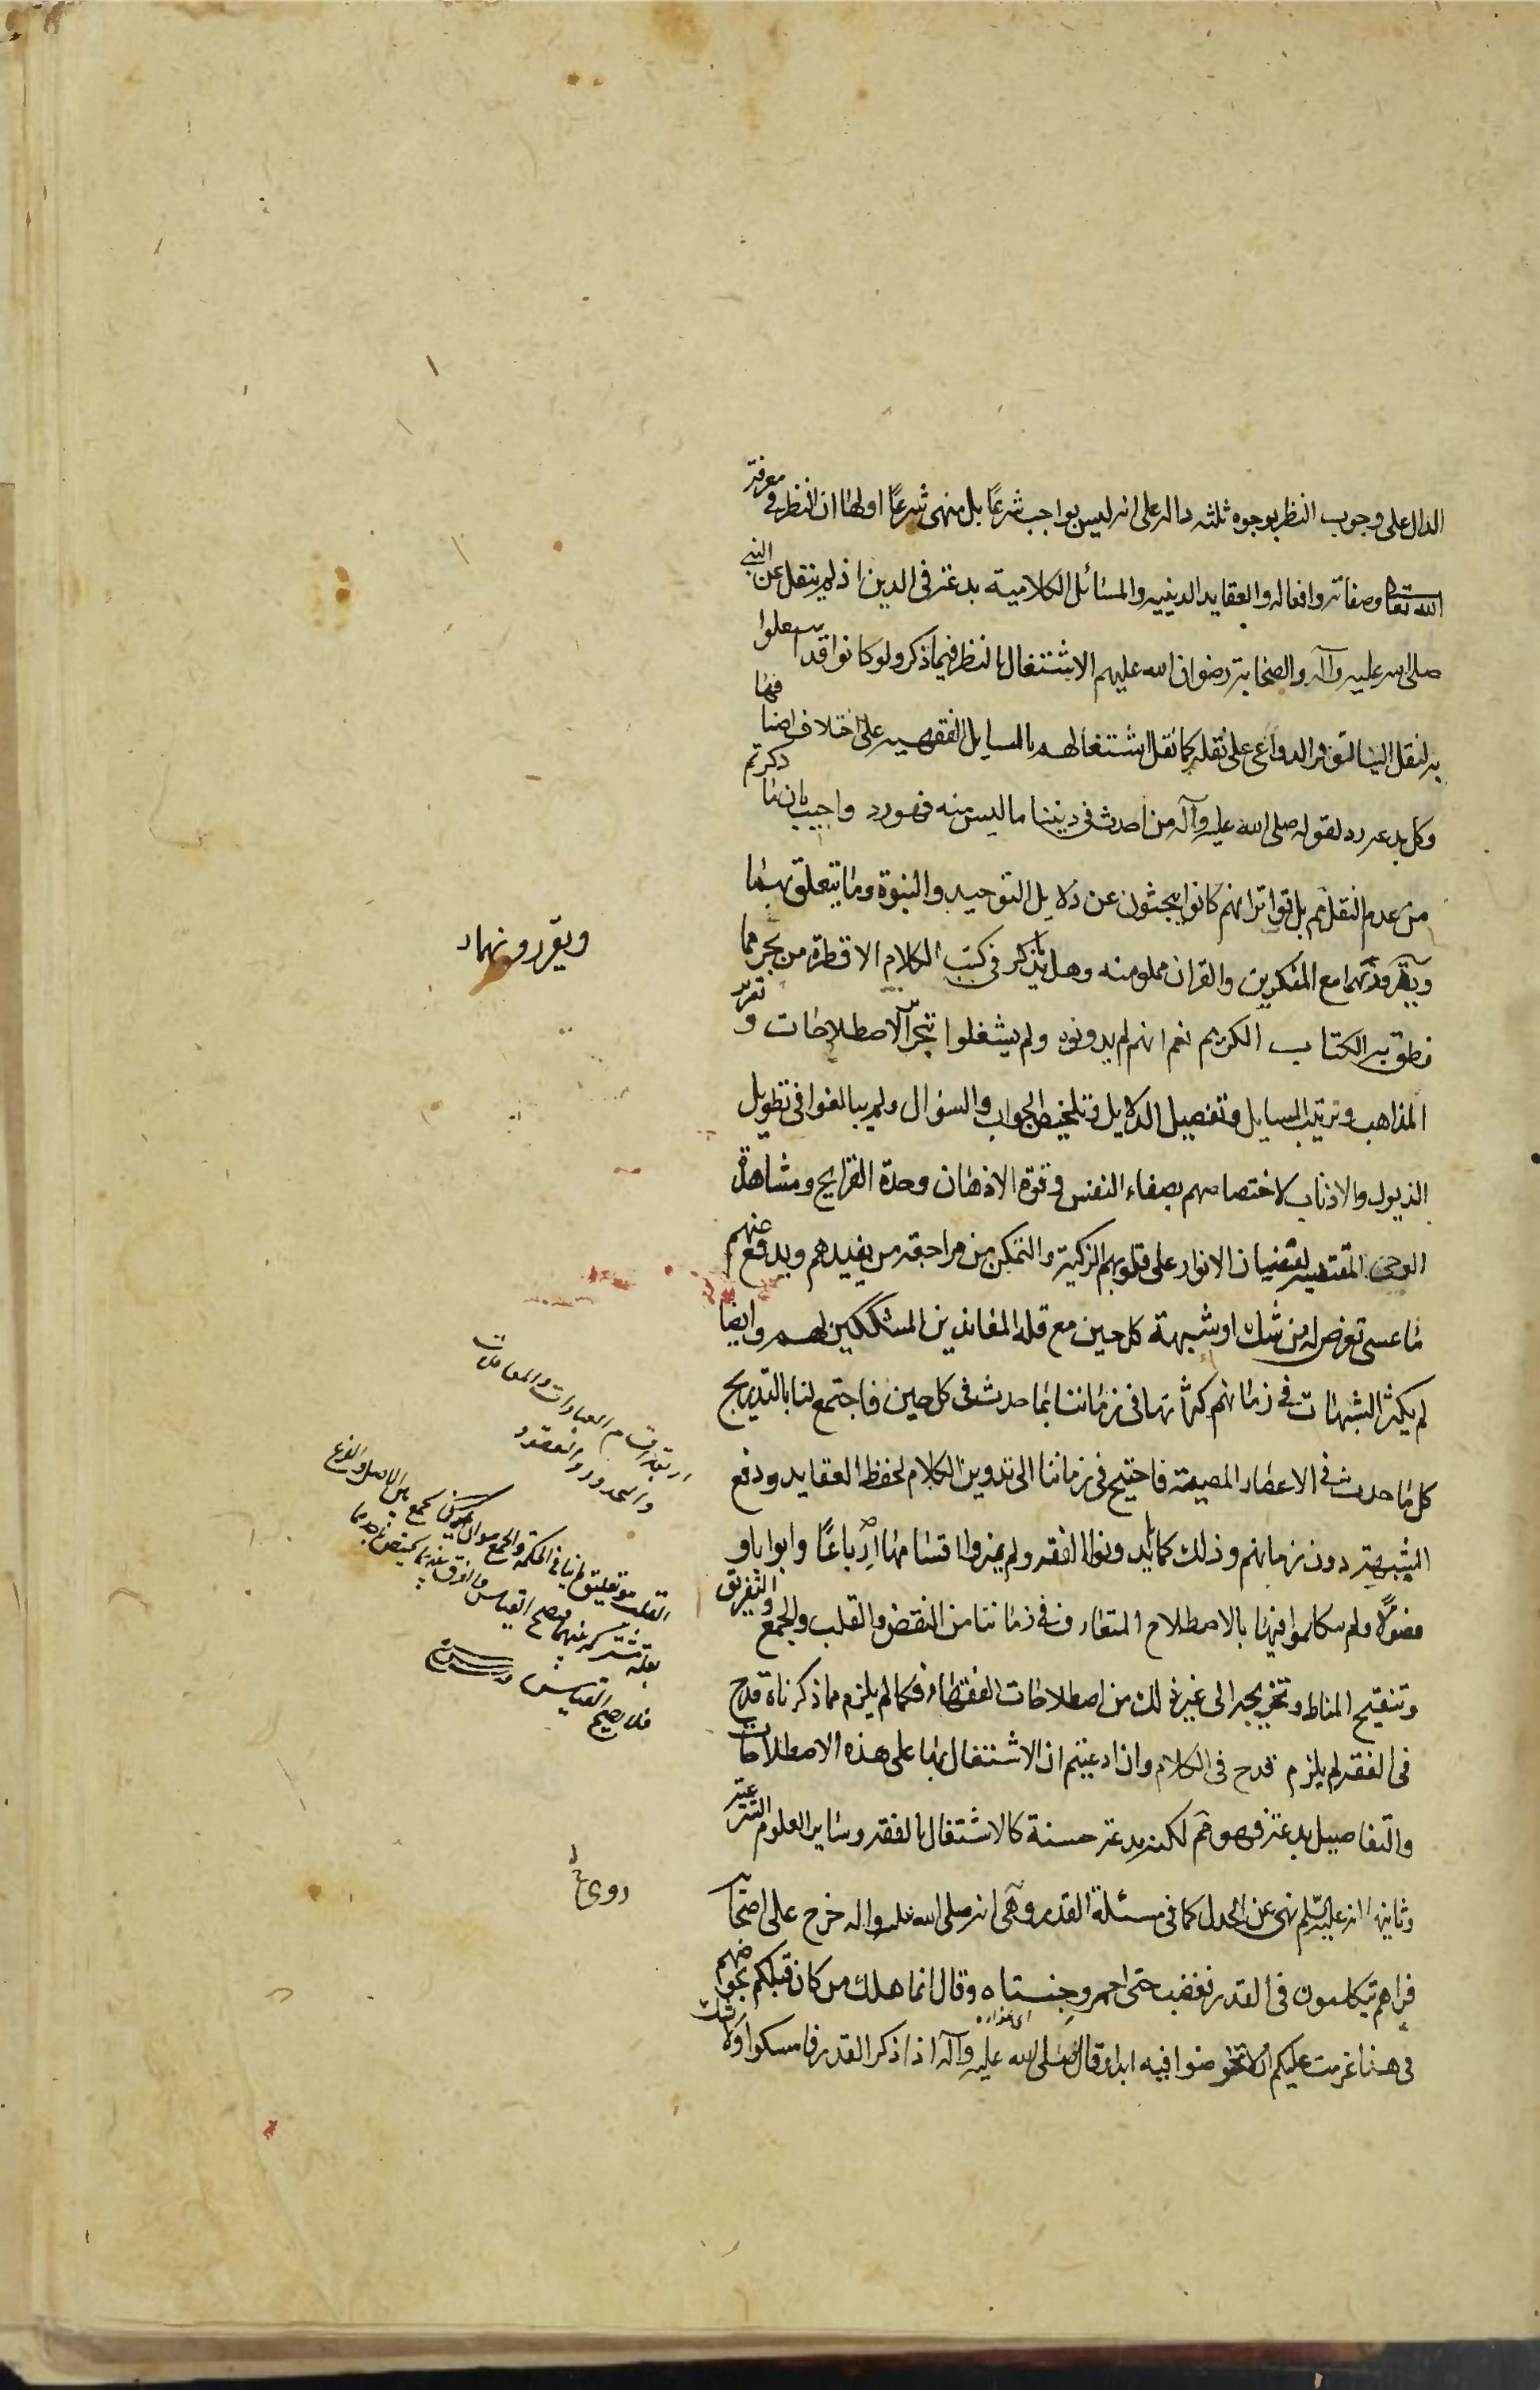 الدال على وجوب النظر بوجوه ثلثه داله على انه ليس بواجب شرعًا بل منهى شرعًا اولها ان النظر فى معرفة
الله تعا وصفاته وافعاله والعقايد الدينيه والمسائل الكلامية بدعة فى الدين اذ لم ينقل عن النبى
صلى الله عليه وآله والصحابة رضوان الله عليهم الاشتغال بالنظر فيما ذكر ولو كانوا قد اشتغلوا
به لنقل الينا لتوفر الدواعى على نقله كما نقل اشتغالهم بالمسايل الفقهيه على اختلاف اصنافها
وكل بدعه رد لقوله صلى الله عليه وآله من احدث فى ديننا ما ليس منه فهو رد واجيب بان ما ذكرتم
من عدم النقل ثم بل تواتر انهم كانوا يبحثون عن دلايل التوحيد والنبوة وما يتعلق بهما
ويقررونهما مع المنكرين والقران مملو منه وهل يذكر فى كتب الكلام الا قطرة من بحر مما
نطق به الكتاب الكريم نعم انهم لم يدونوه ولم يشغلوا بتحرير الاصطلاحات وتقرير
المذاهب وترتيب المسايل وتفصيل الدلايل وتلخيص الجواب والسؤال ولم يبالغوا فى تطويل
الذيول والاذناب لاختصاصهم بصفاء النفس وقوة الاذهان وحدة القرايح ومشاهدة
الوحى المقتضيه لفيضان الانوار على قلوبهم الزكية والتمكن من مراجعة من يفيدهم ويدفع عنهم
ما عسى تعرض له من شك او شبهة كل حين مع قلة المعاندين المشككين لهم وايضا
لم يكثر الشبهات فى زمانهم كثرتها فى زماننا بما حدث فى كل حين فاجتمع لنا بالتدريج
كل ما حدث فى الاعصار الماضية فاحتيج فى زماننا الى تدوين الكلام لحفظ العقايد ودفع
الشبهة دون زمانهم وذلك كما لم يدونوا الفقه ولم يميزوا اقسامها ارباعًا وابوابا و
فصولًا ولم يتكلموا فيها بالاصطلاح المتعارف فى زماننا من النقض والقلب والجمع والتفريق
وتنقيح المناط وتخريجه الى غير ذلك من اصطلاحات الفقهاء فكما لم يلزم مما ذكرناه قدح
فى الفقه لم يلزم قدح فى الكلام وان ادعيتم ان الاشتغال بها على هذه الاصطلاحات
والتفاصيل بدعة فهو ثم لكنه بدعة حسنة كالاشتغال بالفقه وساير العلوم الشرعية
وثانيها انه عليه السلم نهى عن الجدل كما فى مسئلة القدر وهى انه صلى الله عليه واله خرج على اصحابه
فراهم يتكلمون فى القدر فغضب حتى احمر وجنتاه وقال انما هلك من كان قبلكم بخوضهم
فى هذا عزمت عليكم ان لا تخوضوا فيه ابدا وقال صلى الله عليه وآله اذا ذكر القدر فامسكوا ولا شك
ويقررونهما
اربعة اقسام العبادات والمعاملات
والحدود والعقود
بعلة مشتركه بينهما فيصح القياس
فلا يصح القياس
روى